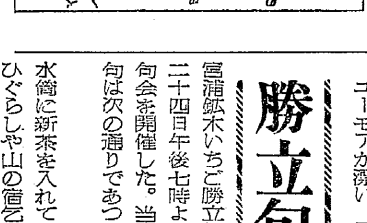 ユーモアが深い
勝立句
宮浦鉱木いちご勝立
二十四日午後七時よ
句会を開催した。当
句は次の通りであつ
水筒に新茶を入れて
ひぐらしや山の宿乞